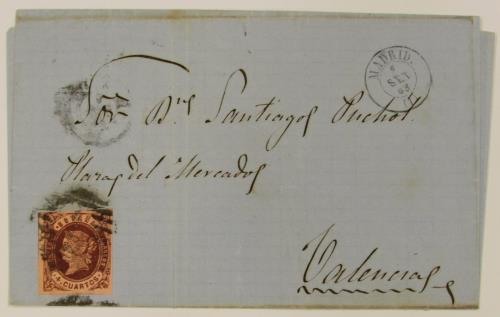 MADRID.
6
SET
63
Sor Dn Santiago Puchol
Plaza del Mercado
Valencia
ESPAÑA
4 CUARTOS